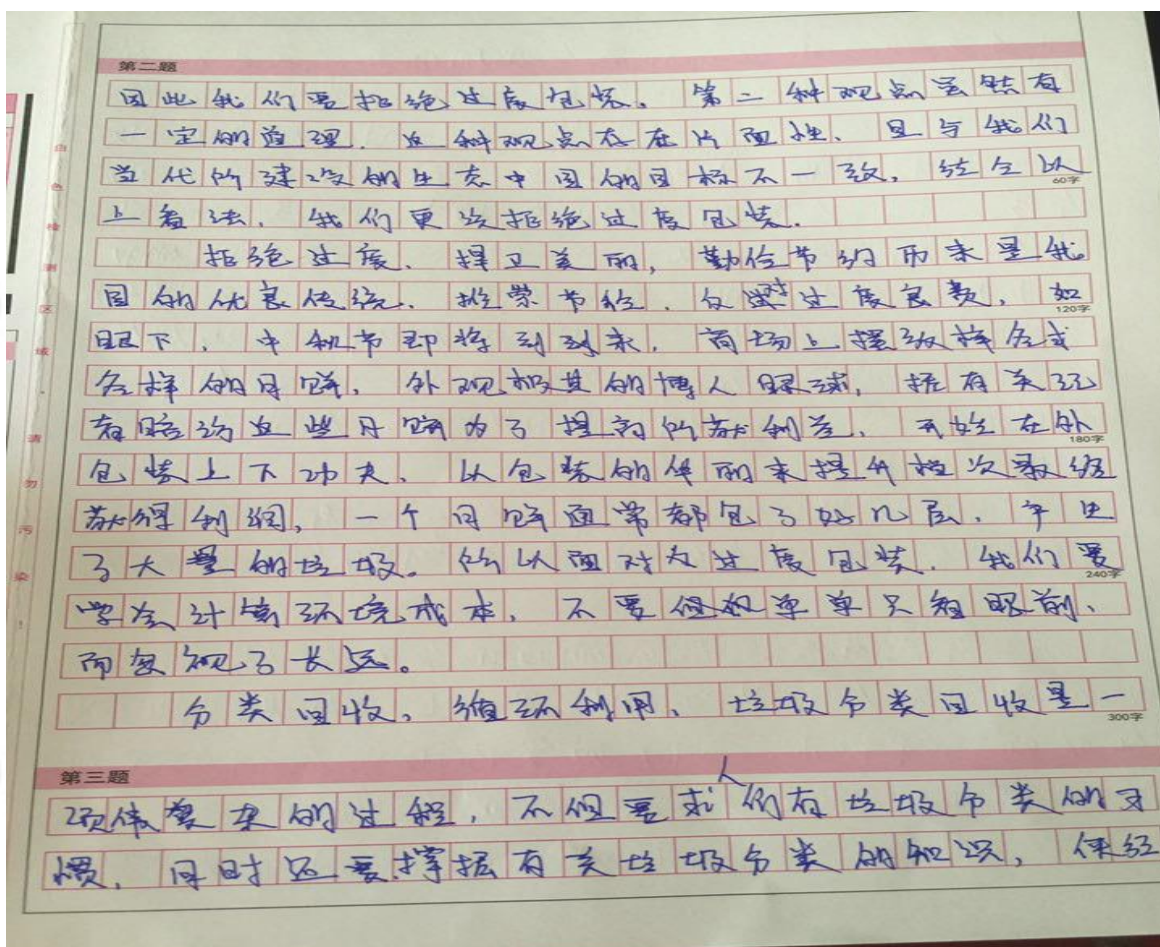 第二题
因此我们要拒绝过度包装。第二种观点虽然有
一定的道理,这种观点存在片面性,且与我们
当代所建设的生态中国的目标不一致,结合以
上看法,我们更该拒绝过度包装.
60字
拒绝过度,捍卫美丽,勤俭节约历来是我
国的优良传统.推崇节俭,反对过度包装,如
120字
眼下,中秋节即将到到来,商场上摆放样各式
各样的月饼,外观极其的博人眼球,据有关
者 这些月饼为了提高所获利差,开始在外
180字
包装上下功夫,以包装的华丽来提升档次
获得利润,一个月饼通常都包了好几层,产生
了大量的垃圾。所以面对 过度包装,我们要
240字
学会计算环境成本,不要 单单只看眼前,
而忽视了长远。
分类回收,循环利用,垃圾分类回收是一
300字
第三题
项 复杂的过程,不但要求人们有垃圾分类的习
惯,同时还要掌握有关垃圾分类的知识,
白色检测区域,请勿污染!